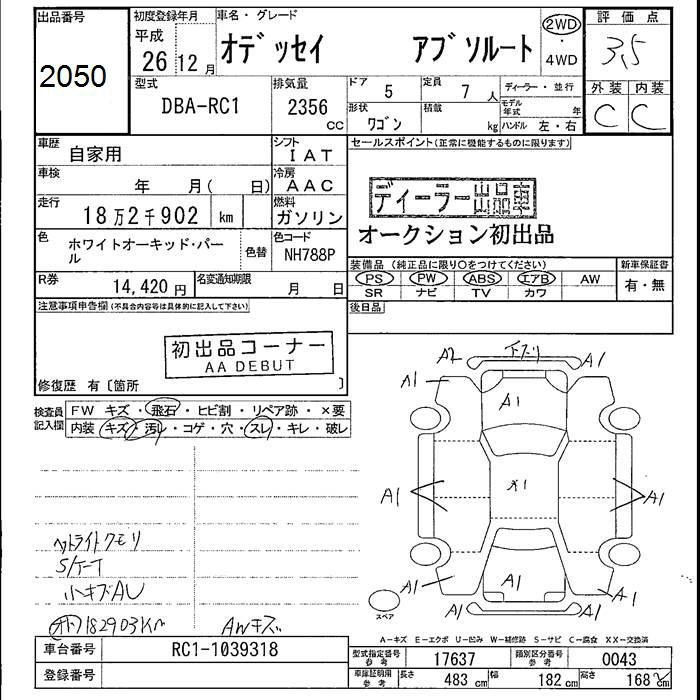 出品番号 2050
初度登録年月 平成 26 12月
車名・グレード オデッセイ アブソルート
2WD ・ 4WD
評価点 3,5
外装 C 内装 C
型式 DBA-RC1
排気量 2356 cc
ドア 5
定員 7 人
ディーラー・並行
形状 ワゴン
積載 kg
モデル年式 年
ハンドル 左・右
車歴 自家用
シフト IAT
車検 年 月( 日)
冷房 AAC
走行 18万2千902 km
燃料 ガソリン
色 ホワイトオーキッド・パール
色替
色コード NH788P
R券 14,420 円
名変通知期限 月 日
セールスポイント(正常に機能するものに限ります)
ディーラー出品車
オークション初出品
装備品 (純正品に限り○をつけてください)
新車保証書
PS PW ABS エアB AW
SR ナビ TV カワ
有・無
後日品
注意事項申告欄(不具合内容等は具体的に記入して下さい)
初出品コーナー
AA DEBUT
修復歴 有〔箇所 〕
検査員記入欄
FW キズ・飛石・ヒビ割・リペア跡・×要
内装 キズ・汚レ・コゲ・穴・スレ・キレ・破レ
ヘットライトクモリ
S/ケーT
小キズAU
182903Km
AWキズ
A2 下スリ A1
A1 A1
A1
A1 X1 A1
A1 A1 A1
A1 A1
スペア
A-キズ E-エクボ U-凹み W-補修跡 S-サビ C-腐食 XX-交換済
車台番号 RC1-1039318
登録番号
型式指定番号 参考 17637
類別区分番号 参考 0043
車庫証明用 参考 長さ 483 cm 幅 182 cm 高さ 168 cm